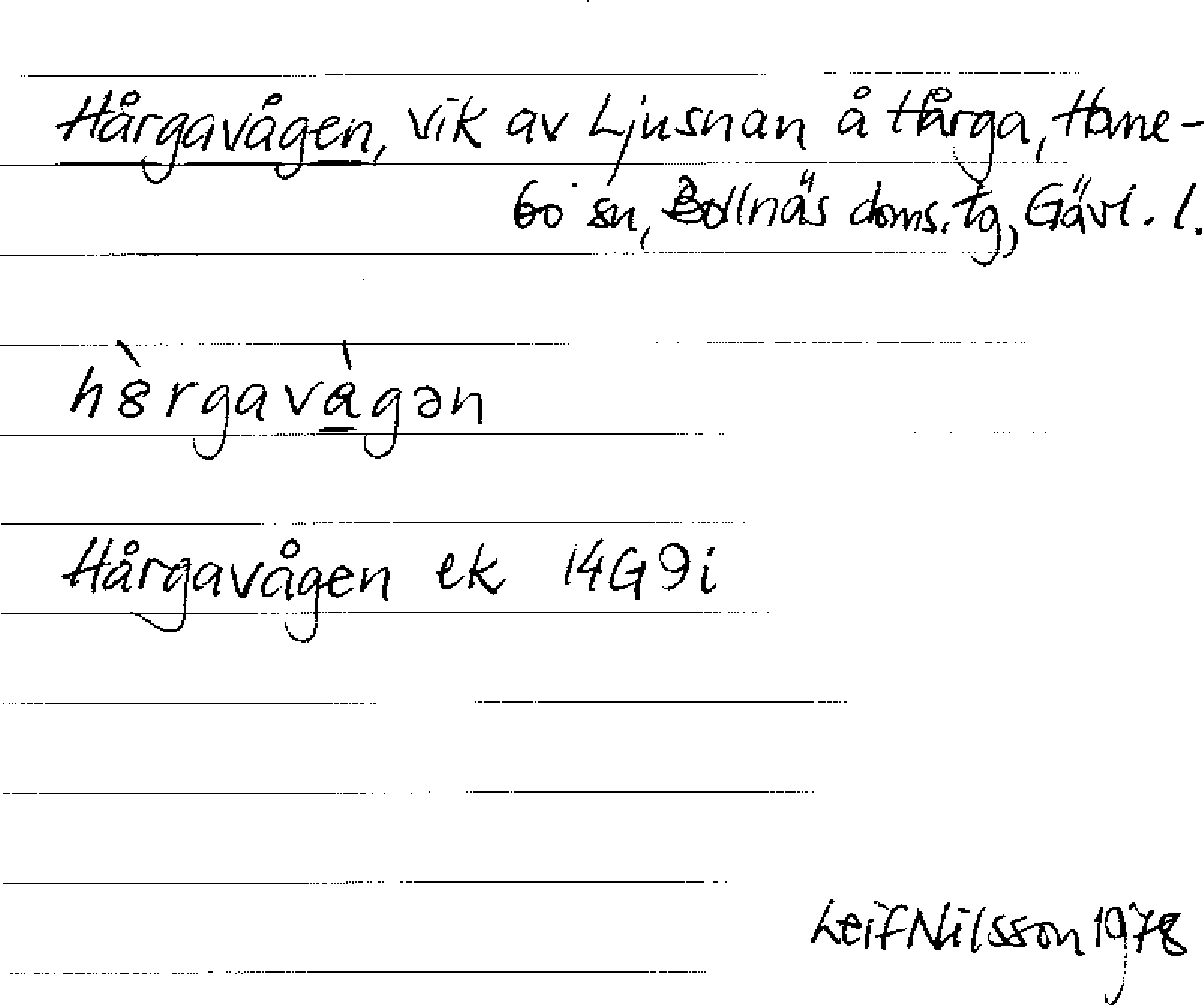 Hårgavågen, vik av Ljusnan å Hårga, Hane-
bo sn, Bollnäs doms. tg, Gävl. l.
hȣ̀rgavàgən
Hårgavågen ek 14G9i
Leif Nilsson 1978